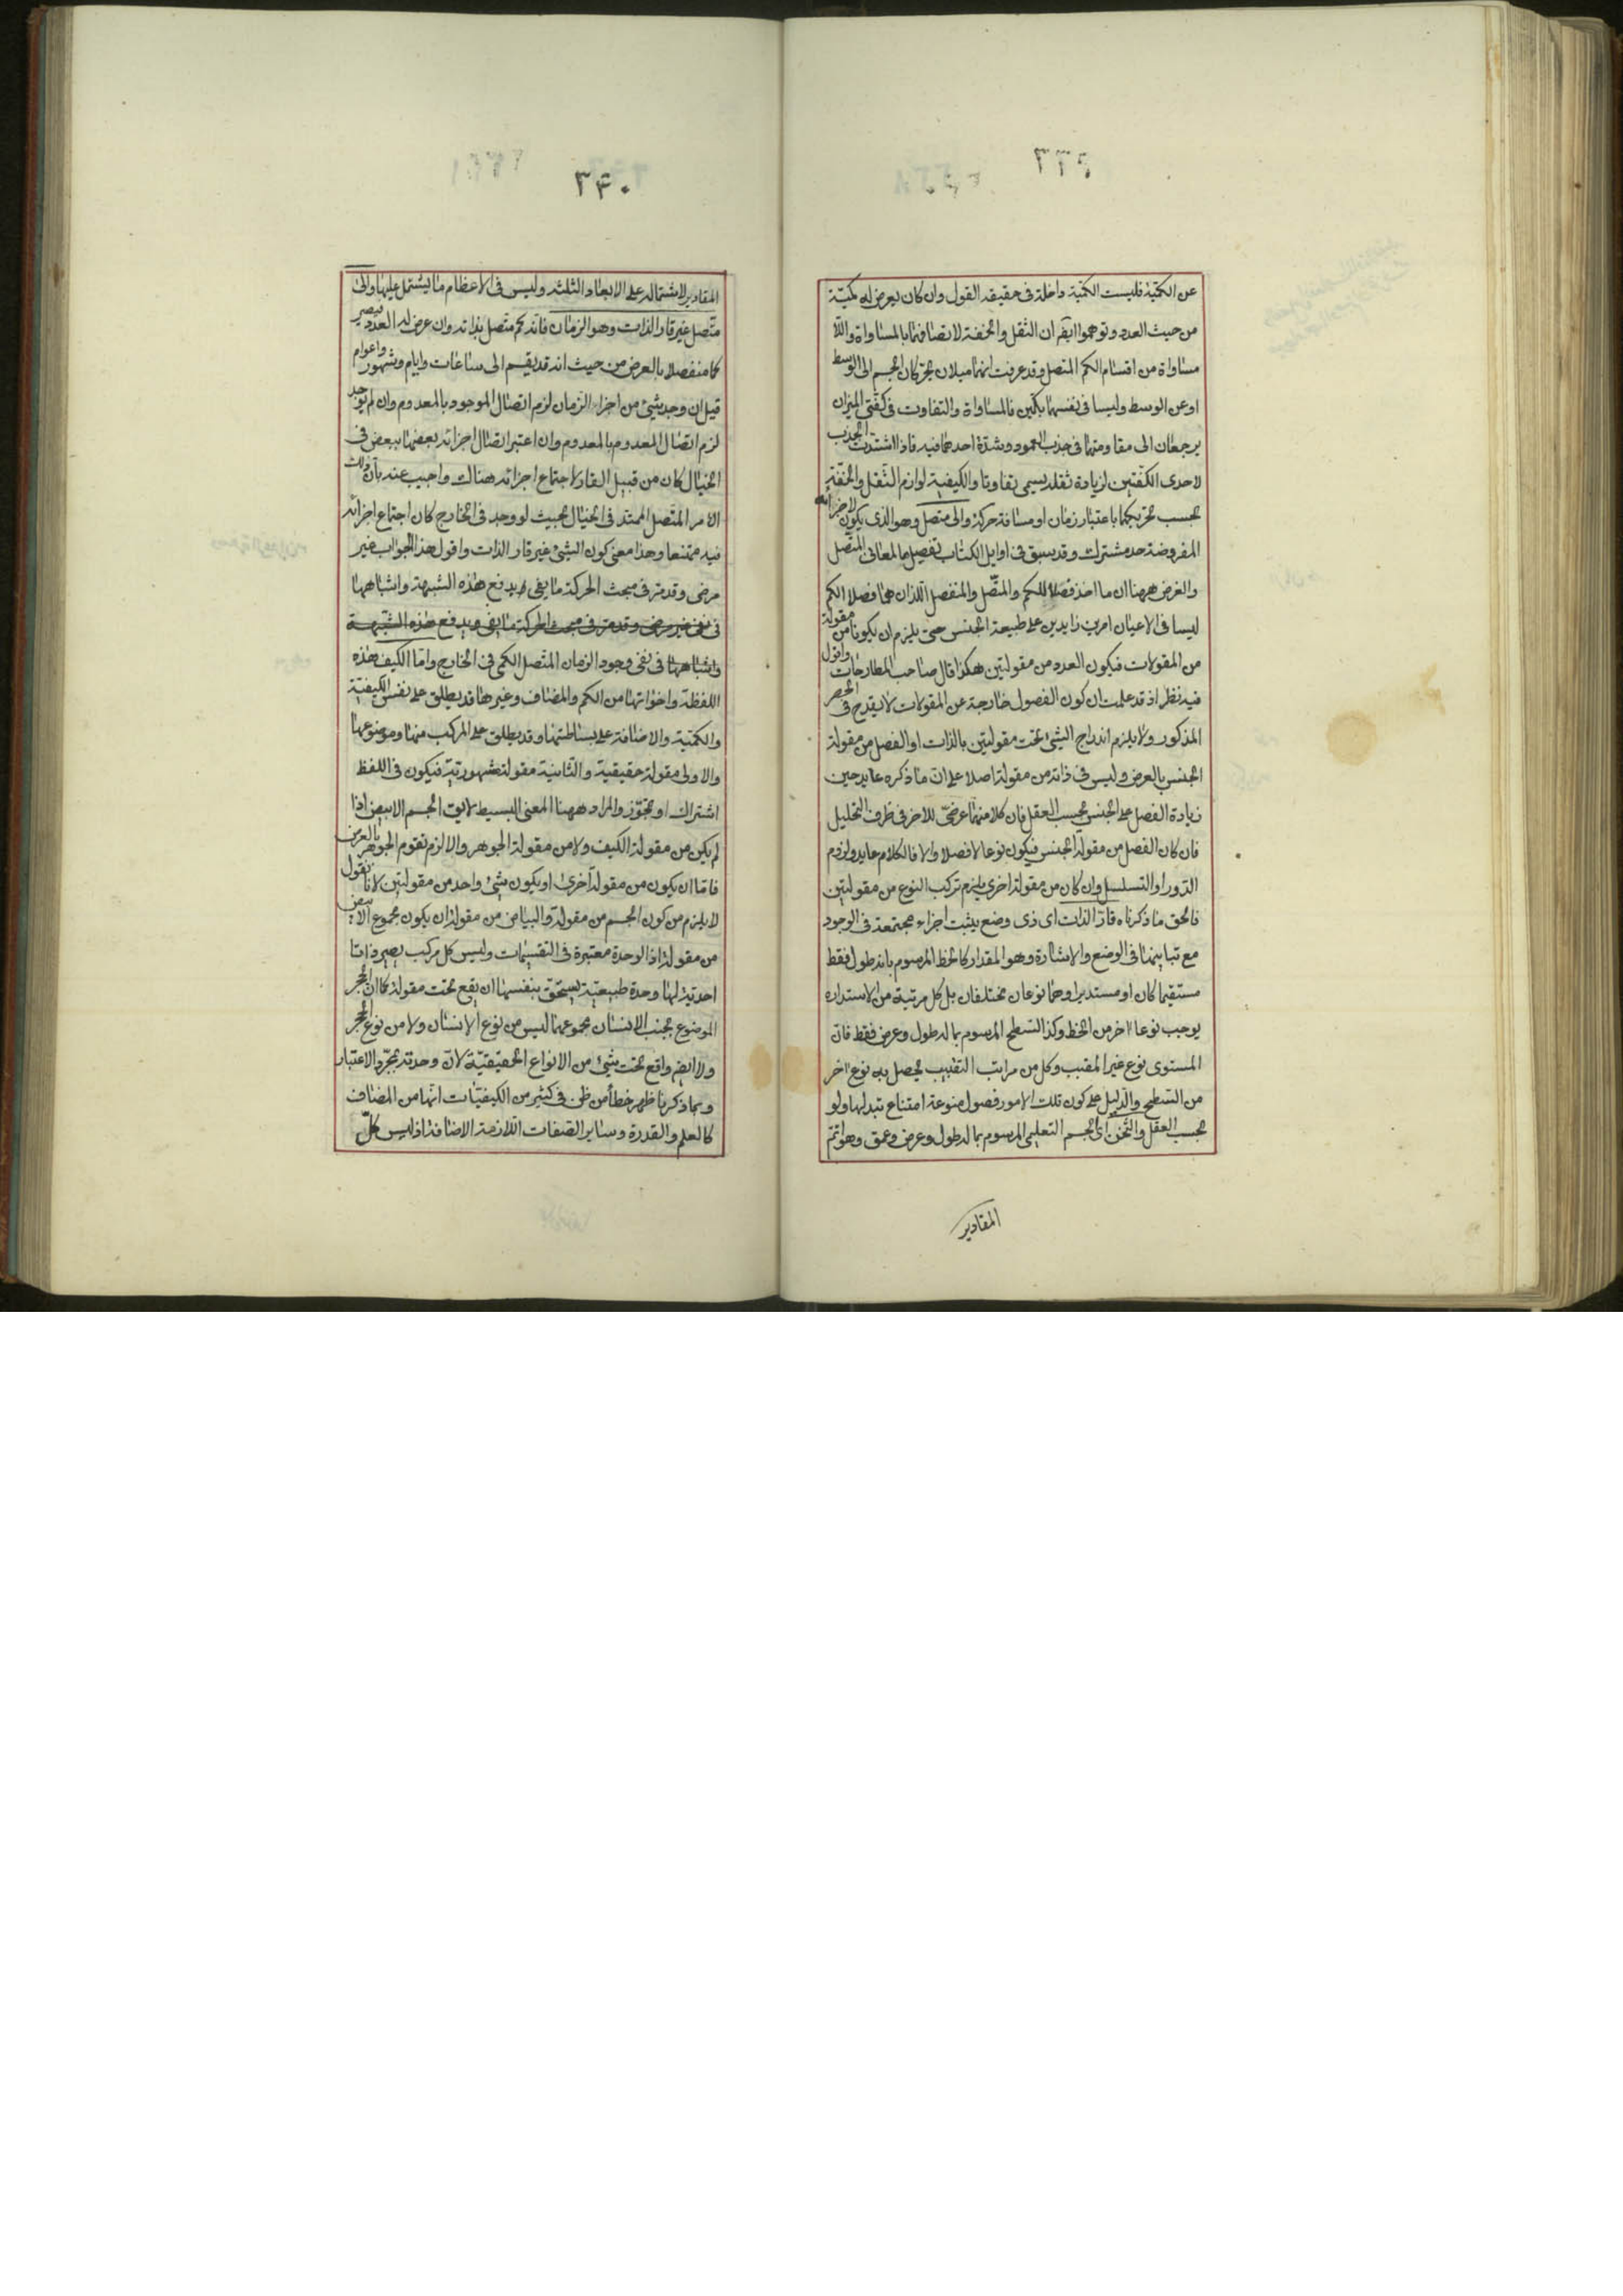 ٣٣٩
عن الكمّية فليست الكمّية داخلة فى حقيقه القول وان كان يعرض له كميّة
من حيث العدد وتوهموا ايضا ان الثقل والخفة لاتصافهما بالمساواة واللّا
مساواة من اقسام الكم المتصل وقد عرفت انهما ميلان يحركان الجسم الى الوسط
او عن الوسط وليسا فى نفسهما بكمّين فالمساواة والتفاوت فى كفّتى الميزان
يرجعان الى مقاومتهما فى جذب العمود وشدّة احدهما فيه فاذا اشتدت الجذب
لاحدى الكفّتين لزيادة ثقله يسمى تفاوتا والكيفية لوازم الثّقل والخفّة
بحسب تحريكهما باعتبار زمان او مسافة حركة والى متصل وهو الذى يكون لاجزائه
المفروضة حد مشترك وقد سبق فى اوايل الكتاب تفصيل ما لمعانى المتّصل
والغرض ههنا ان ما اخذ فصلا للكم والمتّصل والمنفصل اللذان هما فصلا الكم
ليسا فى الاعيان امرين زايدين على طبيعة الجنس حتى يلزم ان يكونا من مقولة
من المقولات فيكون العدد من مقولتين هكذا قال صاحب المطارحات واقول
فيه نظر اذ قد علمت ان كون الفصول خارجة عن المقولات لا يقدح فى الحصر
المذكور ولا يلزم اندراج الشئ تحت مقولتين بالذات او الفصل من مقولة
الجنس بالعرض وليس فى ذاته من مقولة اصلا على انّ ما ذكره عايد حين
زيادة الفصل على الجنس بحسب العقل فان كلا منهما عرضىّ للاخر فى ظرف التحليل
فان كان الفصل من مقولة الجنس فيكون نوعا لا فصلا والا فالكلام عايد ولزوم
الدّور او التسلسل وان كان من مقولة اخرى يلزم تركب النوع من مقولتين
فالحق ما ذكرناه قارّ الذات اى ذى وضع يثبت اجزاء مجتمعة فى الوجود
مع تباينها فى الوضع والاشارة وهو المقدار كالخط المرسوم بانه طول فقط
مستقيما كان او مستديرا وهما نوعان مختلفان بل كل مرتبة من الاستداره
يوجب نوعا اخر من الخط وكذا السّطح المرسوم بما له طول وعرض فقط فانّ
المستوى نوع غير المقبب وكل من مراتب التقبيب يحصل به نوع اخر
من السّطح والدّليل على كون تلك الامور فصول منوعة امتناع تبدلها ولو
بحسب العقل والثخن اى الجسم التعليمى المرسوم بما له طول وعرض وعمق وهو اتمّ
المقادير
٣٤٠
المقادير لاشتماله على الابعاد الثلثه وليس فى الاعظام ما يشتمل عليها والى
متّصل غير قار الذات وهو الزمان فانّه كم متّصل بذاته وان عرض له العدد فيصير
كما منفصلا بالعرض من حيث انه قد يقسم الى ساعات وايام وشهور واعوام
قيل ان وجد شئ من اجزاء الزمان لزم اتصال الموجود بالمعدوم وان لم يوجد
لزم اتصال المعدوم بالمعدوم وان اعتبر اتصال اجزائه بعضها ببعض فى
الخيال كان من قبيل القار لاجتماع اجزائه هناك واجيب عنه بانّ ذلك
الامر المتّصل الممتد فى الخيال بحيث لو وجد فى الخارج كان اجتماع اجزائه
فيه ممتنعا وهذا معنى كون الشئ غير قار الذات واقول هذا الجواب غير
مرضى وقد مرّ فى مبحث الحركة ما يفى بدفع هذه الشبهة واشباهها
واشباهها فى نفى وجود الزمان المتّصل الكمى فى الخارج وامّا الكيف هذه
اللفظة واخواتها من الكم والمضاف وغيرها قد يطلق على نفس الكيفيّة
والكمّية والاضافة على بساطتها وقد يطلق على المركب منها وموضوعها
والاولى مقولة حقيقية والثانية مقولة مشهوريّة فيكون فى اللفظ
اشتراك او تجوّز والمراد ههنا المعنى البسيط لايق الجسم الابيض اذا
لم يكن من مقولة الكيف ولا من مقولة الجوهر والا لزم تقوم الجوهر بالعرض
فامّا ان يكون من مقولة اخرى او يكون شئ واحد من مقولتين لانا نقول
لا يلزم من كون الجسم من مقولة والبياض من مقولة ان يكون مجموع الابيض
من مقولة اذ الوحدة معتبرة فى التقسيمات وليس كل مركب يصير ذاتا
احديّة لها وحدة طبيعيّة يستحقّ بنفسها ان يقع تحت مقولة كما ان الحجر
الموضوع بجنب الانسان مجموعهما ليس من نوع الانسان ولا من نوع الحجر
ولا ايضا واقع تحت شئ من الانواع الحقيقيّة لانّ وحدته بمجرّد الاعتبار
وبما ذكرنا ظهر خطأ من ظن فى كثير من الكيفيّات انّها من المضاف
كالعلم والقدرة وساير الصّفات اللازمة الاضافة اذ ليس كلّ